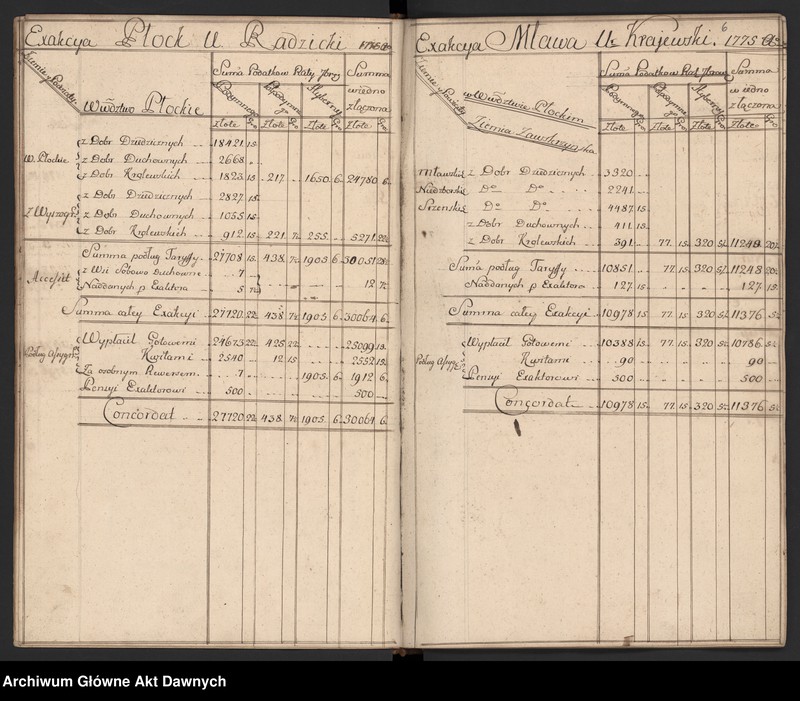 Exakcya Płock U Radzicki 1775
Ziemie y Powiaty
Wwdztwo Płockie
Suma Podatkow Raty Xbrj
Summa w iedno złączona
Podymnego Gro Pospadymnego Gro Hyberny Gro
Złote Złote Złote Złote
W. Płockie z Dobr Dziedzicznych 18421 15
z Dobr Duchownych 2668
z Dobr Krolewskich 1823 15 217 1650 6 24780 6
z Dobr Dziedzicznych 2827 15
Z Wyszogr z Dobr Duchownych 1055 15
z Dobr Krolewskich 912 15 221 7½ 255 5271 22½
Summa podług Taryffy 27708 15 438 7½ 1905 6 30051 28½
Accessit z Wsi Sobowo Duchowne 7
Naddanych p Exaktora 5 7½ 12 7½
Summa całey Exakcyi 27720 22½ 438 7½ 1905 6 30064 6
Podług Assygn Wypłacił Gotowemi 24673 22½ 425 22½ 25099 15
Kwitami 2540 12 15 2552 15
Za osobnym Rewersem 7 1905 6 1912 6
Pensyi Exaktorowi 500 500
Concordat 27720 22½ 438 7½ 1905 6 30064 6
Exakcya Mława Ur Krajewski 1775
6
Ziemie y Powiaty
w Wwdztwie Płockim
Ziemia Zawskrzynska
Suma Podatkow Rat Xbrowey
Summa w iedno złączona
Złote Złote Złote Złote
Mławskie z Dobr Dziedzicznych 3320
Niedzborskie Do Do 2241
Szrenskie Do Do 4487 15
z Dobr Duchownych 411 15
z Dobr Krolewskich 391 77 15 320 5½ 11248 20½
Suma podług Taryffy 10851 77 15 320 5½ 11248 20½
Naddanych p Exaktora 127 15 127 15
Summa całey Exakcyi 10978 15 77 15 320 5½ 11376 5½
Podług Assygn Wypłacił Gotowemi 10388 15 77 15 320 5½ 10786 5½
Kwitami 90 90
Pensyi Exaktorowi 500 500
Concordat 10978 15 77 15 320 5½ 11376 5½
Archiwum Główne Akt Dawnych